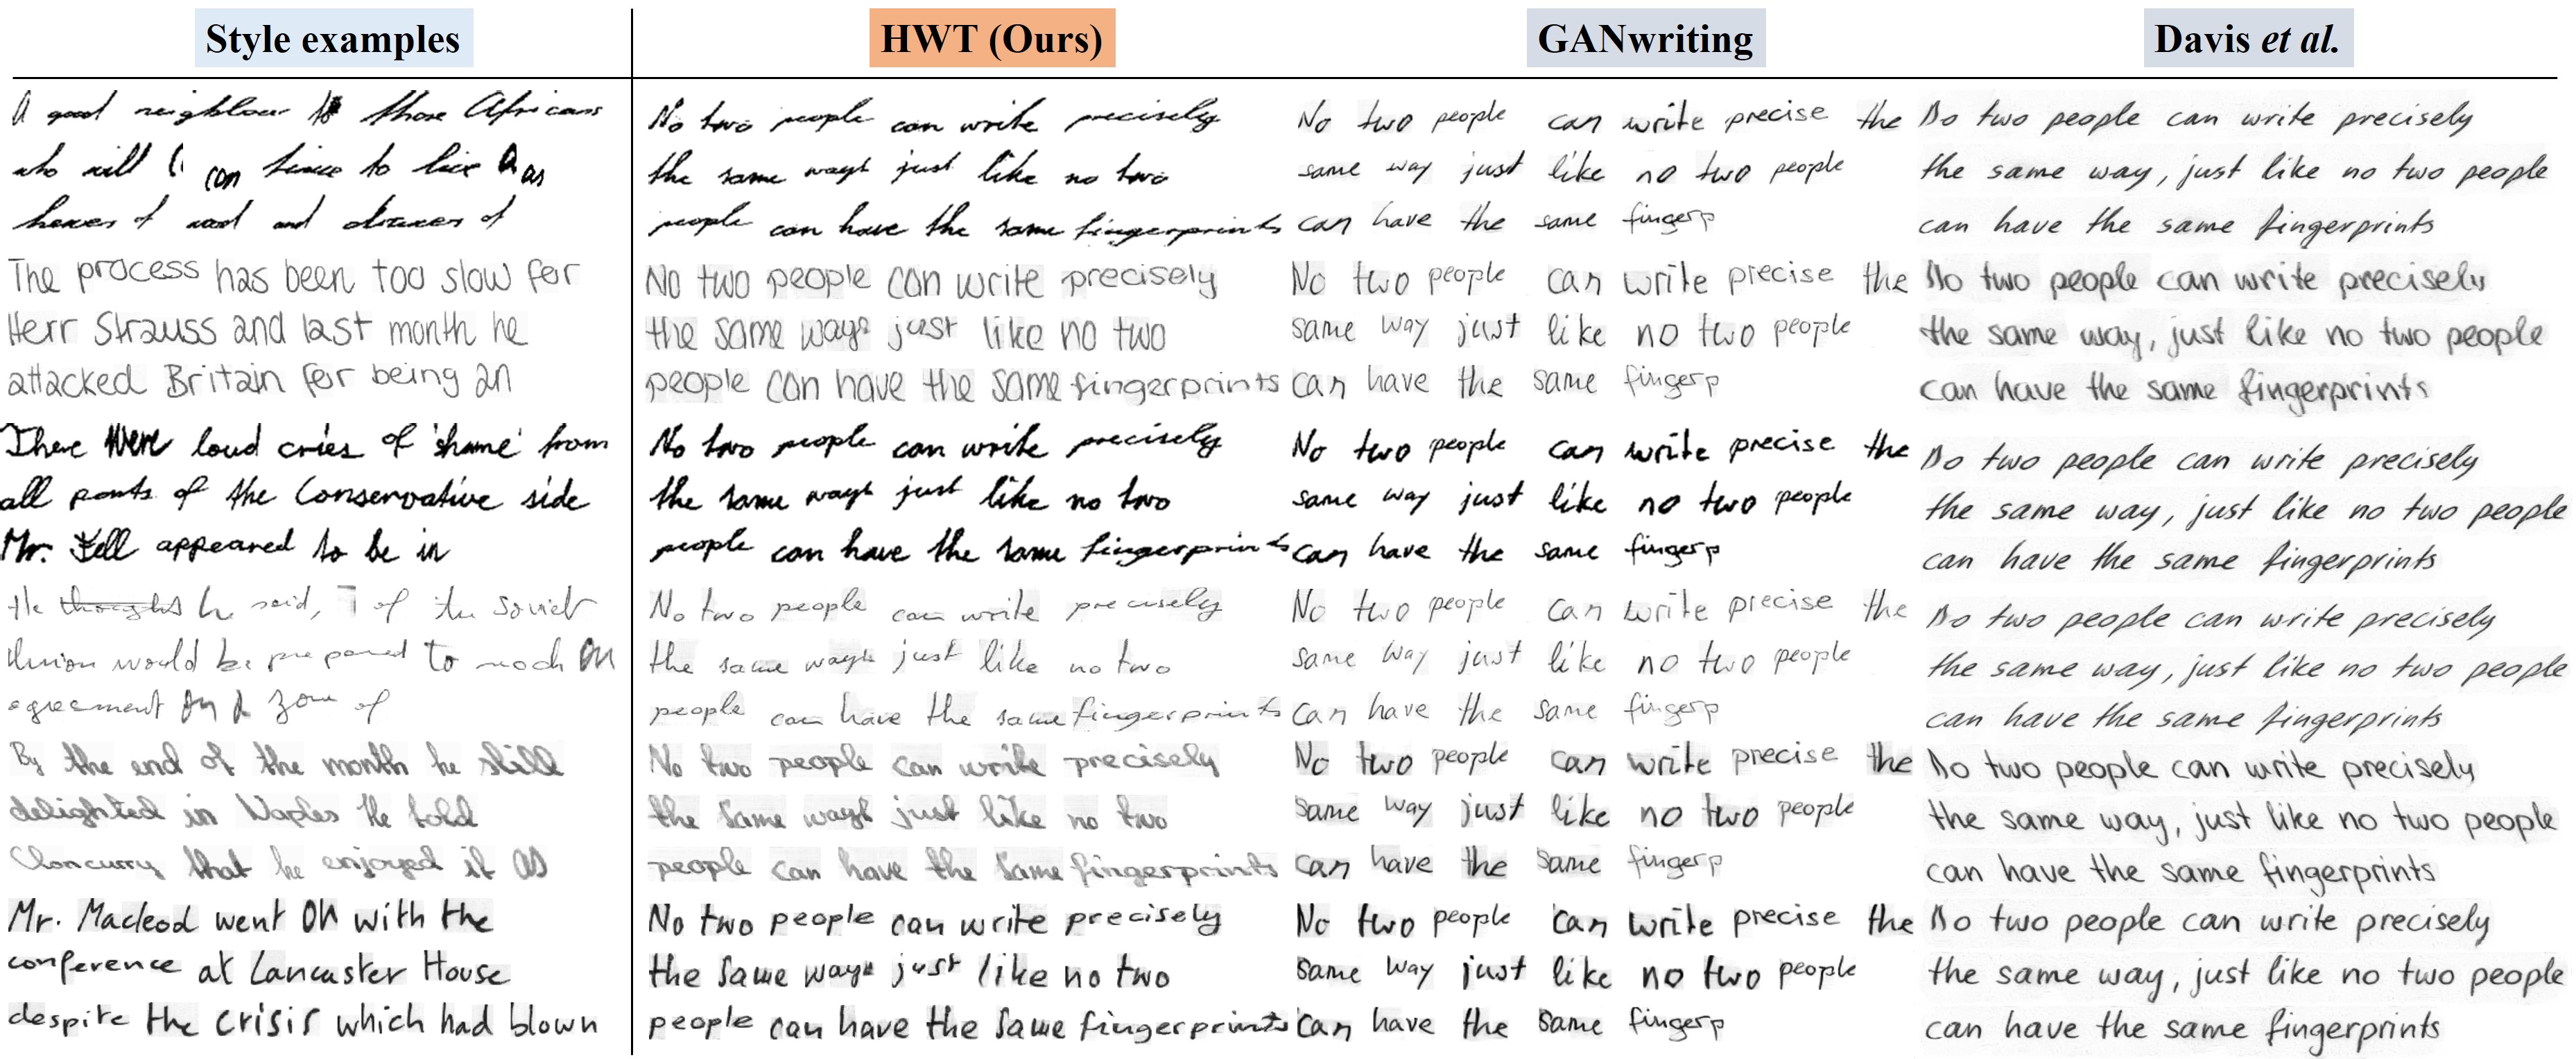 Style examples
A good neighbour to those Africans
who will ( can tinue to live as
hexes of wood and draxes of
The process has been too slow for
Herr Strauss and last month he
attacked Britain for being an
There were loud cries of 'shame' from
all parts of the Conservative side
Mr. Fell appeared to be in
He thought he said, of the soviet
Union would be prepared to reach an
agreement on a zone of
By the end of the month he still
delighted in Naples He told
Cloncurry that he enjoyed it as
Mr. Macleod went on with the
conference at Lancaster House
despite the crisis which had blown
HWT (Ours)
No two people can write precisely
the same ways just like no two
people can have the same fingerprints
No two people can write precisely
the same ways just like no two
people can have the same fingerprints
No two people can write precisely
the same ways just like no two
people can have the same fingerprints
No two people can write precisely
the same ways just like no two
people can have the same fingerprints
No two people can write precisely
the same ways just like no two
people can have the same fingerprints
No two people can write precisely
the same ways just like no two
people can have the same fingerprints
GANwriting
No two people can write precise the
same way just like no two people
can have the same fingerp
No two people can write precise the
same way just like no two people
can have the same fingerp
No two people can write precise the
same way just like no two people
can have the same fingerp
No two people can write precise the
same way just like no two people
can have the same fingerp
No two people can write precise the
same way just like no two people
can have the same fingerp
No two people can write precise the
same way just like no two people
can have the same fingerp
Davis et al.
No two people can write precisely
the same way, just like no two people
can have the same fingerprints
No two people can write precisely
the same way, just like no two people
can have the same fingerprints
No two people can write precisely
the same way, just like no two people
can have the same fingerprints
No two people can write precisely
the same way, just like no two people
can have the same fingerprints
No two people can write precisely
the same way, just like no two people
can have the same fingerprints
No two people can write precisely
the same way, just like no two people
can have the same fingerprints